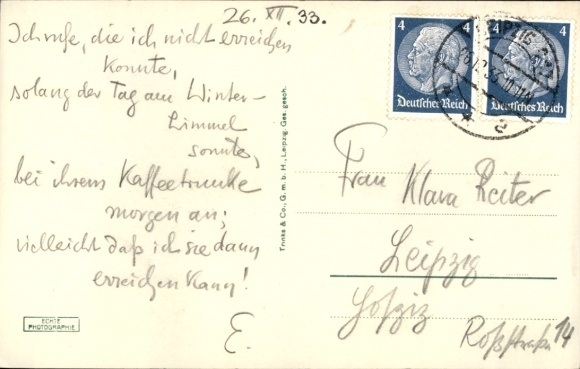 26. XII. 33.
Ich rufe, die ich nicht erreichen
konnte,
solang der Tag am Winter-
himmel
sonnte,
bei ihrem Kaffeetrunke
morgen an;
vielleicht daß ich sie dann
erreichen kann!
E.
ECHTE
PHOTOGRAPHIE
Trinks & Co., G.m.b.H., Leipzig. Ges. gesch.
4 4
Deutsches Reich Deutsches Reich
LEIPZIG
Frau Klara Reiter
Leipzig
Roßstraße 14